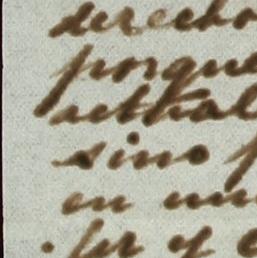 derecho
porque
actual
sino p
en un